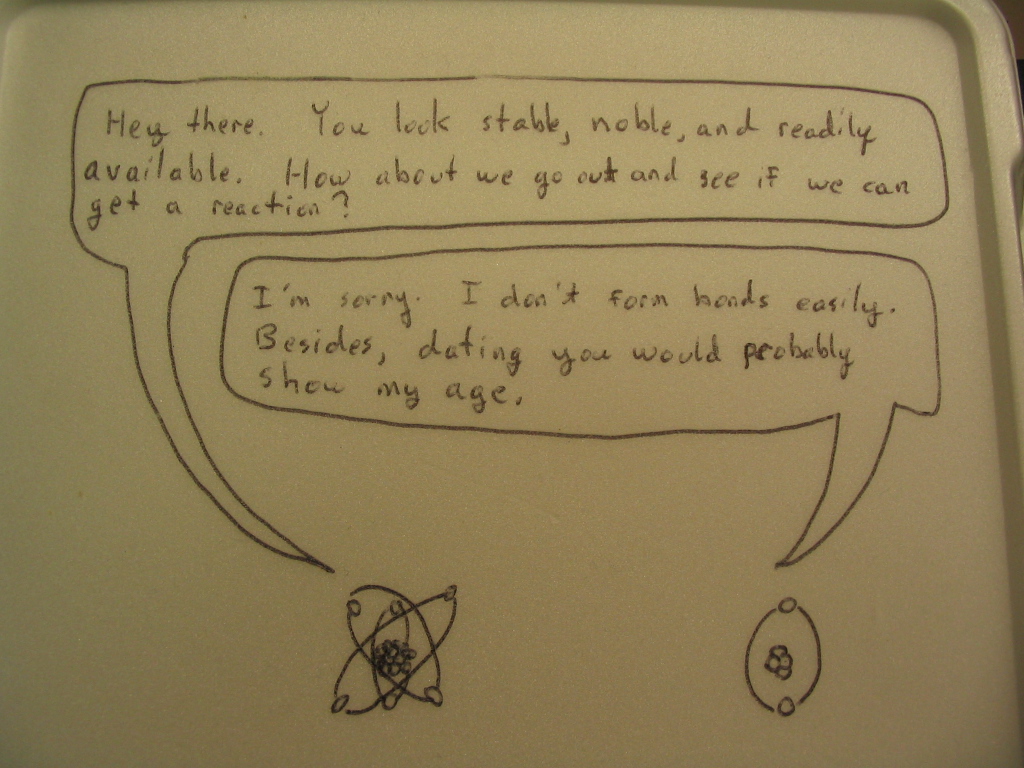 Hey there. You look stable, noble, and readily
available. How about we go out and see if we can
get a reaction?
I'm sorry. I don't form bonds easily.
Besides, dating you would probably
show my age.